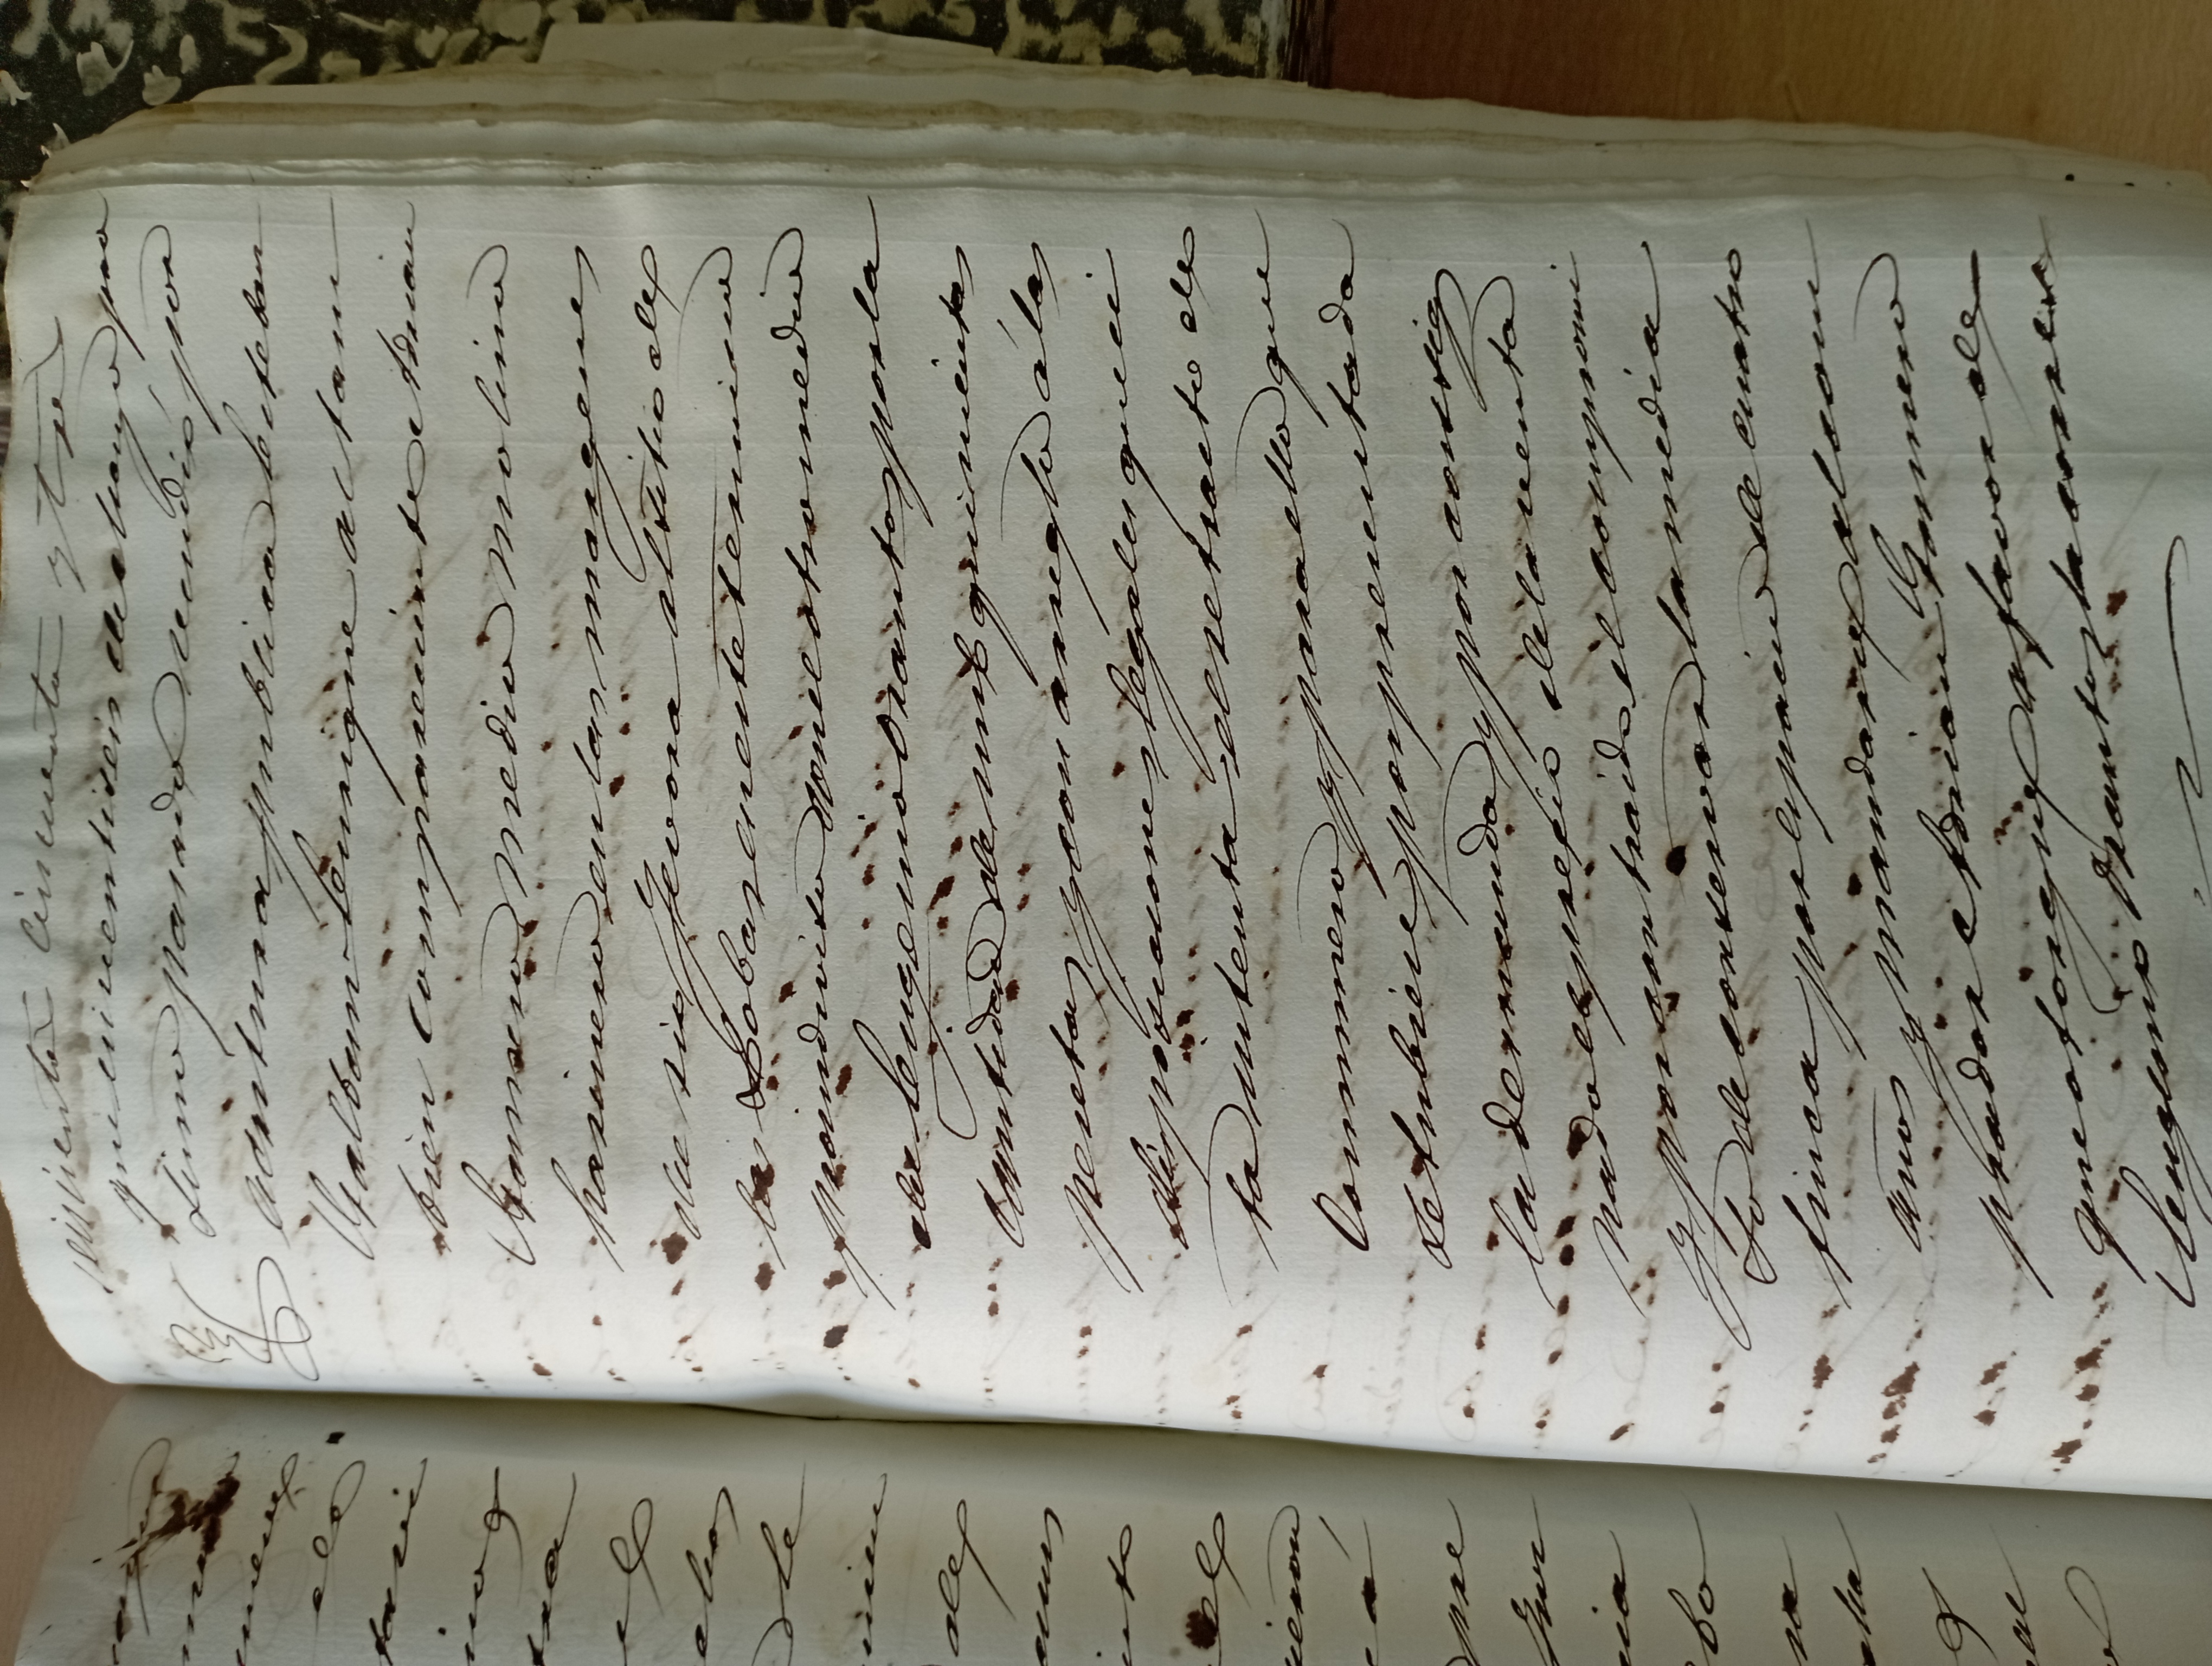 seiscientos cincuenta y tres
que en veintiseis de Mayo pro
simo pasado vendió por
escritura publica Esteban
Galban Enrique al tam
bien compareciente Adrian
Gamero medio molino
harinero en las margenes
del rio Jevora al sitio de
las Lobas en este termino
proindiviso con el otro medio
de Eugenio Orantos por la
cantidad de mil quinientas
pesetas y con arreglo á las
disposiciones legales que ci
ta intenta el retracto de
Comunero y para ello que
se tubiese por presentada
la demanda y por consig
nado el precio de la venta
y por contraido el compromi
so de conservar la media
finca por espacio de cuatro
años y mandarse al com
prador Adrian Gamero
que otorgue a favor de
Eugenio Orantos la corres